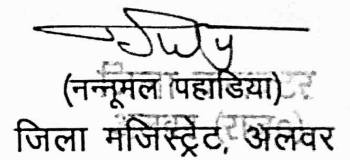 (नन्नूमल पहाडिया)
जिला मजिस्ट्रेट, अलवर